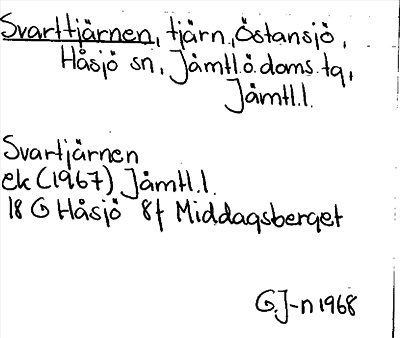 Svarttjärnen, tjärn, Östansjö,
Håsjö sn, Jämtl.ö.doms.tg,
Jämtl.l.
Svartjärnen
ek (1967) Jämtl.l.
18 G Håsjö 8f Middagsberget
G.J-n 1968